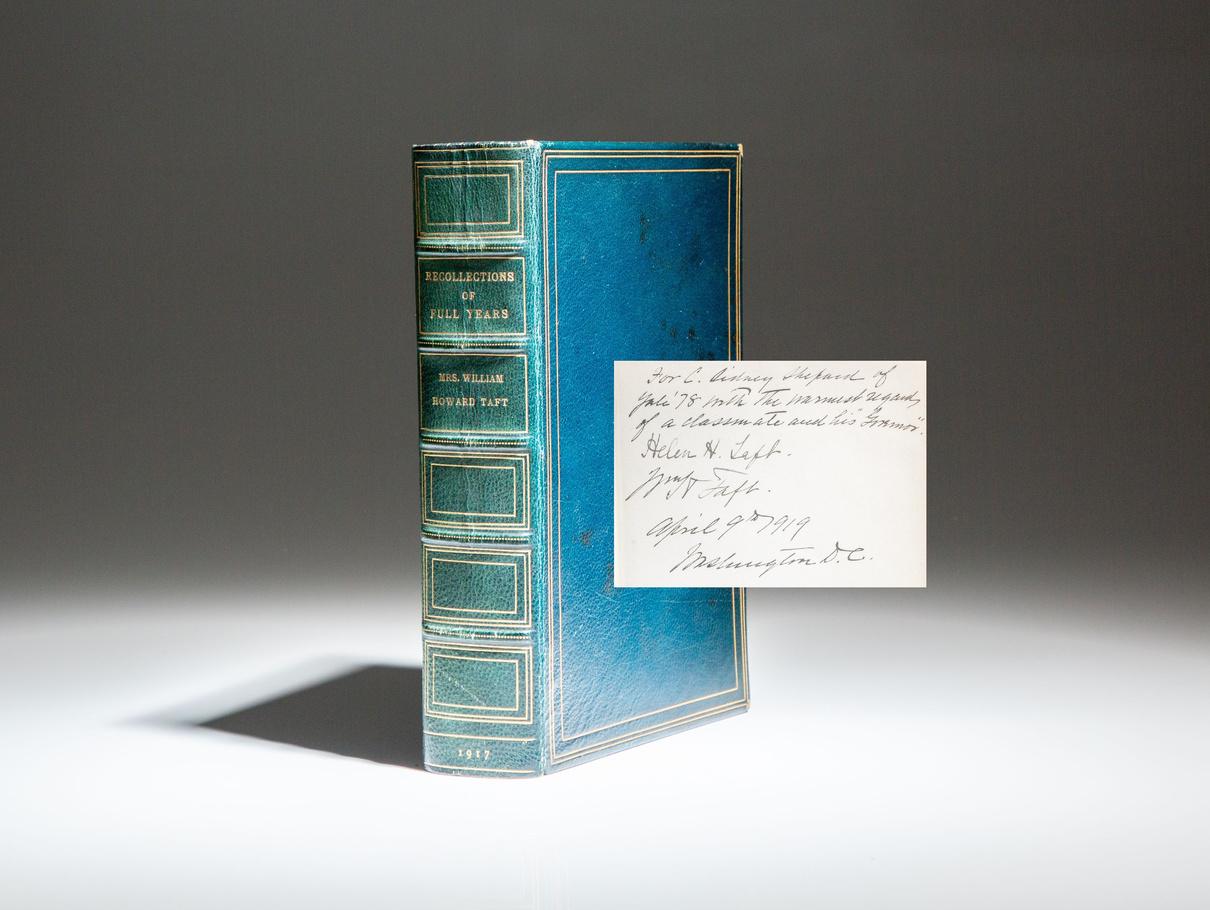 RECOLLECTIONS
OF
FULL YEARS
MRS. WILLIAM
HOWARD TAFT
1917
For C. Sidney Shepard of
Yale '78 with the warmest regards
of a classmate and his "Governor".
Helen H. Taft.
Wm H Taft.
April 9th 1919
Washington D.C.